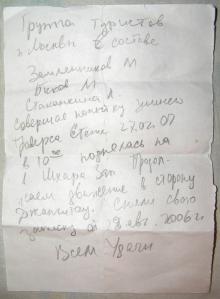 Группа туристов
г. Москвы в составе
Замленников М
Быков М
Стапаткина Л.
совершая попытку зимнего
траверса Стены 27.02.07
в 10 поднялась на
Шхара Зап. Продол-
жаем движение в сторону
Джангитау. Сняли свою
записку от 8 авг. 2006 г
Всем Удачи